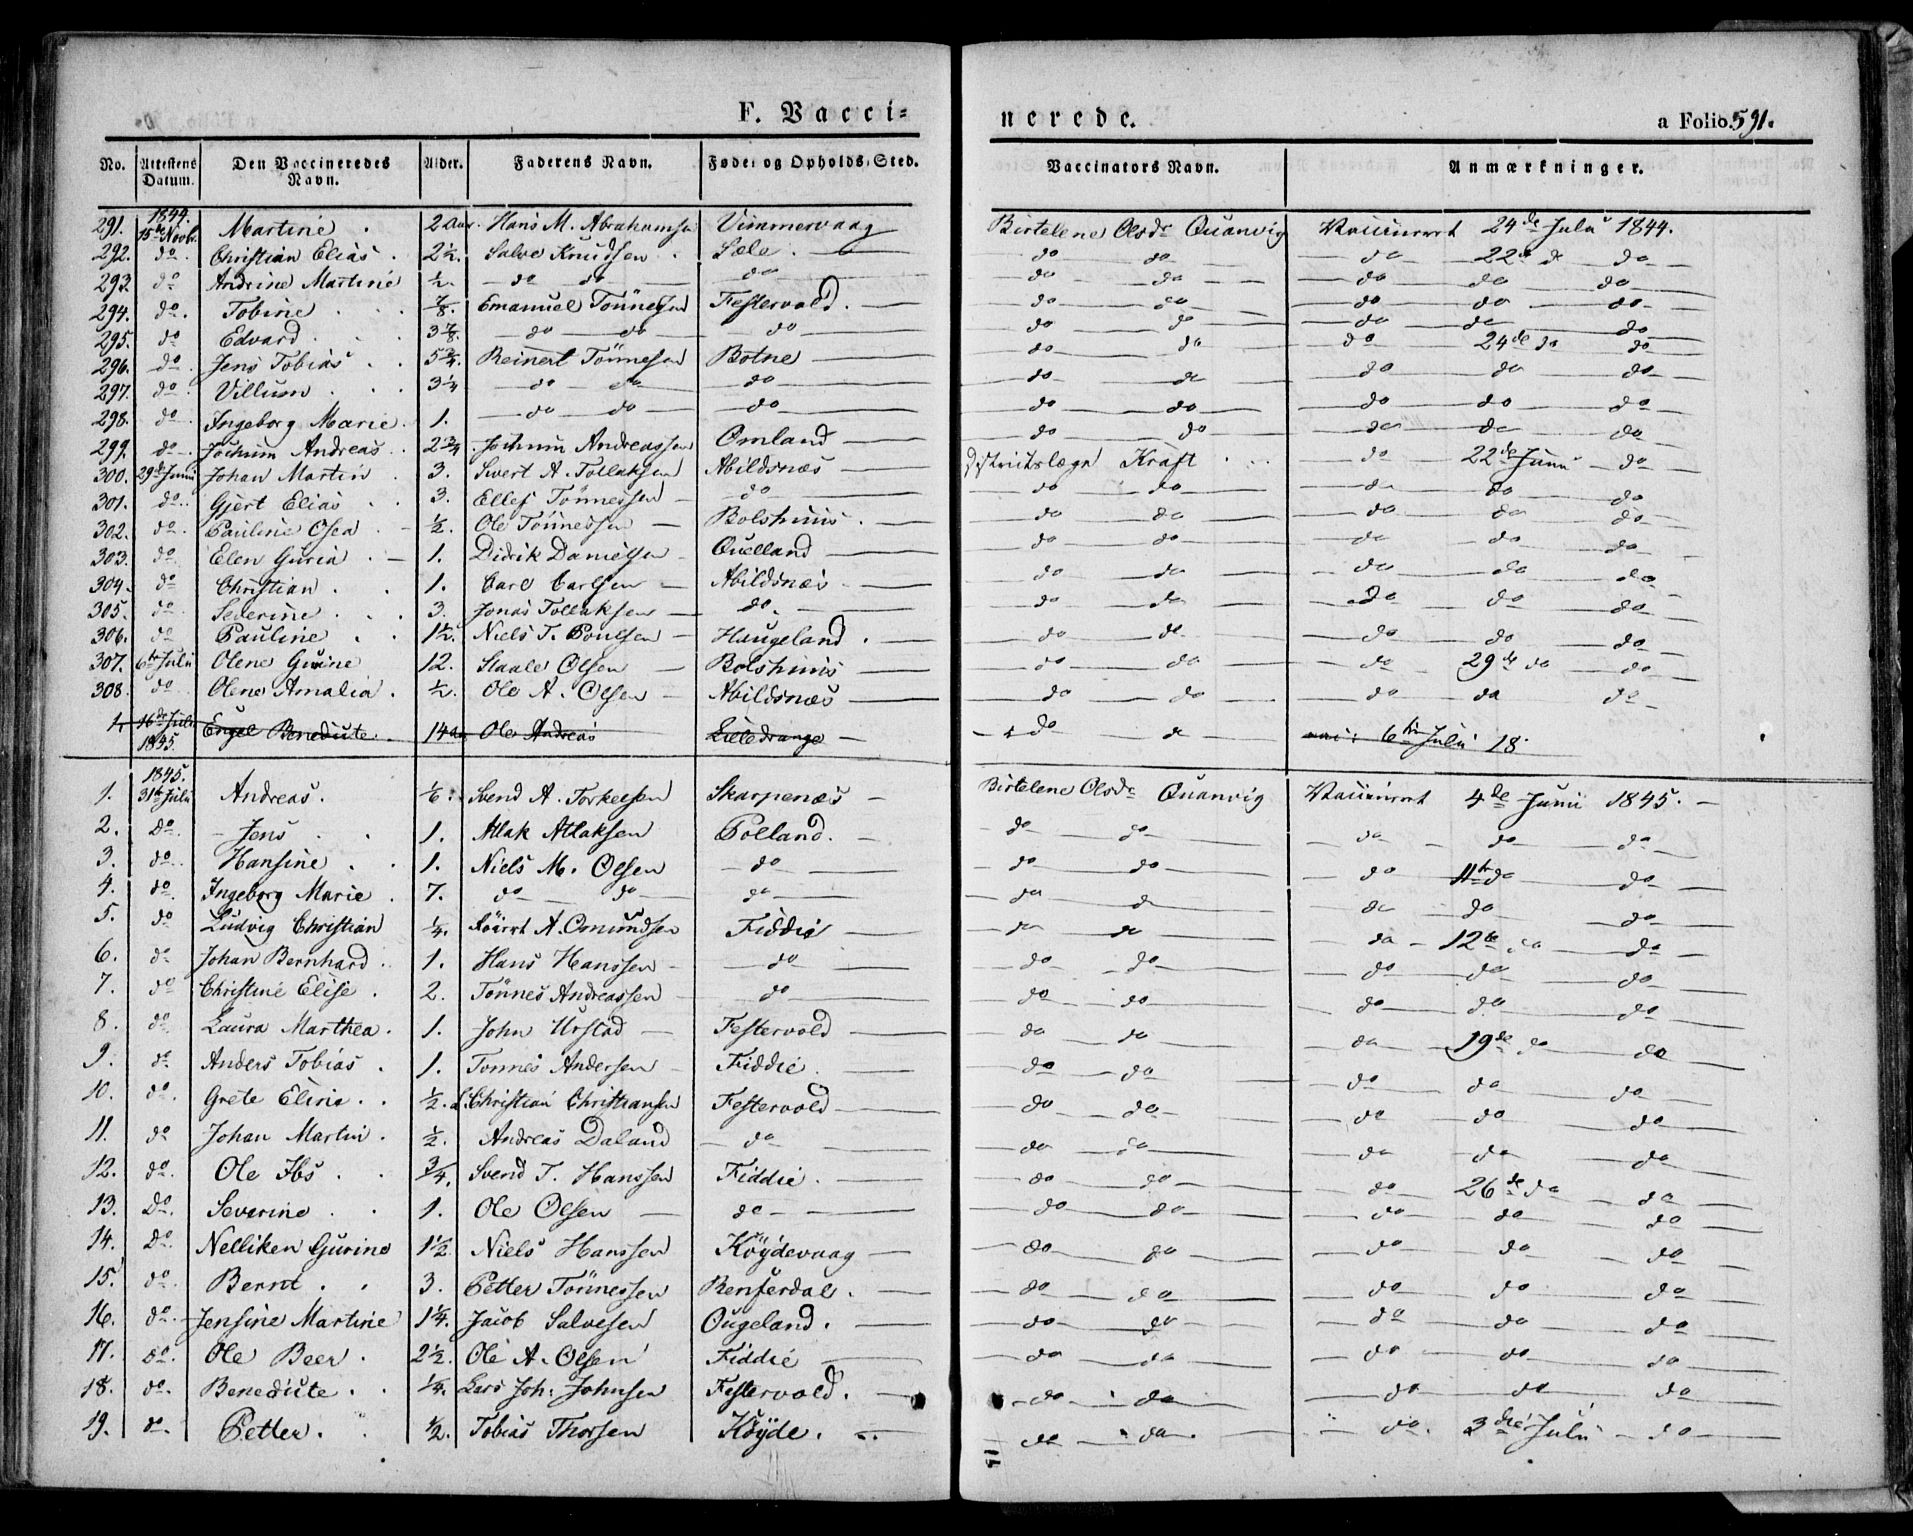 F. Vacci=
nerede.
a Folio 591.
No. Attestens Datum. Den Vaccineredes Navn. Alder. Faderens Navn. Føde- og Opholds-Sted. Vaccinators Navn. Anmærkninger.
291. 1844. 15de Novb. Martine 2 Aar. Hans M. Abrahamsen Vimmervaag Birtelene Olsdr Quanvig 24de Juli 1844.
292. do Christian Elias 2½. Salve Knudsen Sele. do do do 22de do do
293 do Andrine Martine ½. do do do do do do do do
294. do. Tobine ⅞. Emanuel Tönnesen Festervold. do do do do do
295. do Edvard 3⅞. do do do do do do do do
296. do. Jens Tobias 5¾. Reinert Tönnesen Botne do do do 24de do do
297. do. Villum 3¼ do do do do do do do do
298. do Ingeborg Marie 1. do do do do do do do do
299. do Jochum Andreas 2¾ Jochum Andreassen Omland do do do do do
300. 29de Juni Johan Martin 3. Sivert A. Tollaksen Abildsnæs Kraft do 22de Juni do
301. do. Gjert Elias 3. Ellef Tönnessen do do do do do do
302. do. Pauline Osea ½. Ole Tönnessen Bolshuus. do do do do do
303. do Elen Guria 1. Didrik Danielsen Quelland do do do do do
304. do Christian 1. Carl Carlsen Abildsnæs do do do do do
305. do Severine 3. Jonas Tollaksen do. do do do do do
306. do Pauline 1½. Niels T. Poulsen Haugeland. do do do do do
307. 6te Juli Olene Gurine 12. Staale Olsen Bolshuus do do do 29de do do
308. do Olene Amalia ½. Ole A. Olsen Abildsnæs do do do do do
1. 16de Juli 1845. Engel Benedicte 14 Ole Andreas Lieledrange do do 6te Juli 18
1. 1845. 31te Juli Andreas. 1/6. Svend A. Torkelsen Skarpenæs Birtelene Olsdr Quanvig 4de Juni 1845.
2. do. Jens 1. Atlak Atlaksen Polland. do do do do do
3. do Hansine 1. Niels M. Olsen do do do do 11te do do
4. do Ingeborg Marie 7. do do do do do do do do
5. do Ludvig Christian ¼. A. Omundsen Fiddie do do do 12te do do
6. do Johan Bernhard 1. Hans Hanssen do do do do do do
7. do Christine Elise 2. Tönnes Andreassen do do do do do do
8. do Laura Marthea. 1. John Urstad Festervold do do do 19de do do
9. do Anders Tobias 1. Tonnes Andersen Fiddie. do do do do do
10. do. Grete Elirie ½. Christian Christiansen Festervold do do do do do
11. do Johan Martin. ½. Andreas Daland do do do do do do
12. do. Ole Ibs ¾. Svend T. Hanssen Fiddie. do do do 26de do do
13. Do. Severine 1. Ole Olsen do do do do do do
14. Do. Nelliken Gurine 1½ Niels Hanssen Köydevaag do do do do do
15. do. Bernt 3. Petter Tönnessen Renferdal. do do do do do
16. do. Jensine Martine 1¼. Jacob Salvesen Ougeland. do do do do do
17. do. Ole Beer 2½. Ole A. Olsen Fiddie do do do do do
18. do. Benedicte ¼. Lars Joh: Johnsen Festervold. do do do do do
19. do Petter. ½. Tobias Thorsen Köyde. do do. do. 3die Juli do